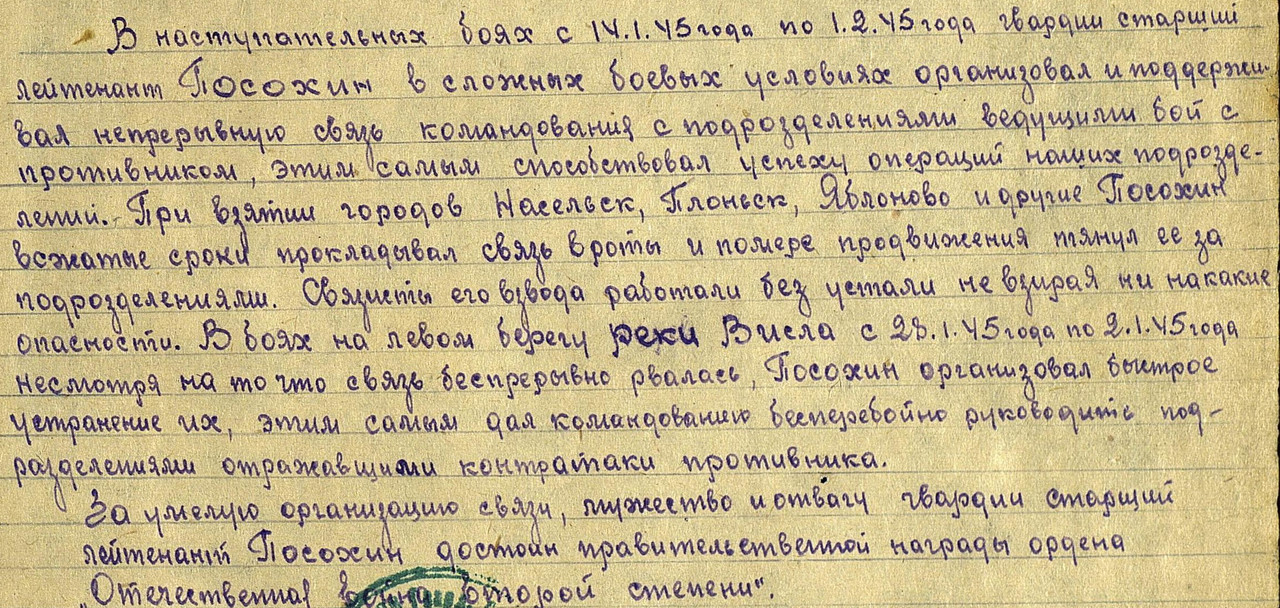 В наступательных боях с 14.1.45 года по 1.2.45 года гвардии старший
лейтенант Посохин в сложных боевых условиях организовал и поддержи-
вал непрерывную связь командования с подрозделениями ведущими бой с
противником, этим самым способствовал успеху операций наших подрозде-
лений. При взятии городов Насельск, Плоньск, Яблоново и другие Посохин
всжатые сроки прокладывал связь в роты и помере продвижения тянул ее за
подрозделениями. Связисты его взвода работали без устали не взирая ни на какие
опасности. В боях на левом берегу реки Висла с 28.1.45 года по 2.1.45 года
несмотря на то что связь беспрерывно рвалась, Посохин организовал быстрое
устранение их, этим самым дал командованию бесперебойно руководить под-
разделениями отражавщими контратаки противника.
За умелую организацию связи, мужество и отвагу гвардии старший
лейтенант Посохин достоин правительственной награды ордена
"Отечественная война второй степени".